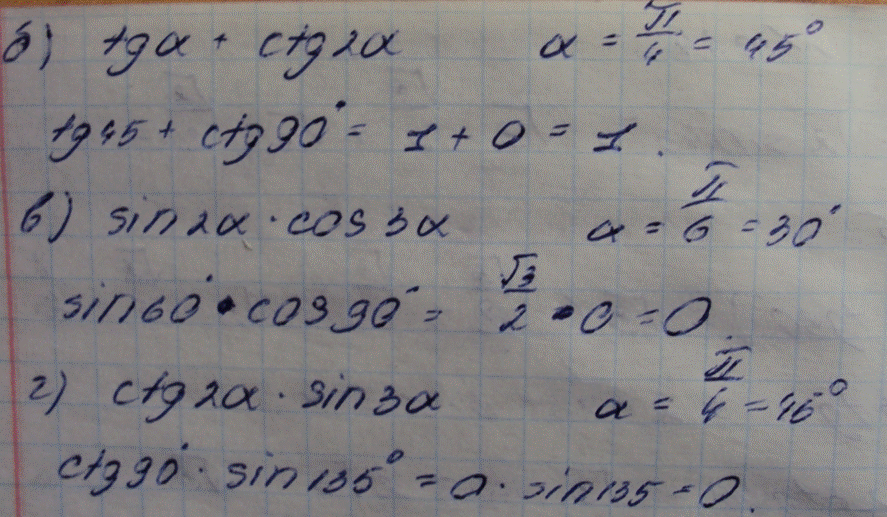 б) tgα + ctg2α α = π/4 = 45°
tg45 + ctg90° = 1 + 0 = 1.
в) sin2α · cos3α α = π/6 = 30°
sin60° · cos90° = √3/2 · 0 = 0.
г) ctg2α · sin3α α = π/4 = 45°
ctg90° · sin135° = 0 · sin135 = 0.